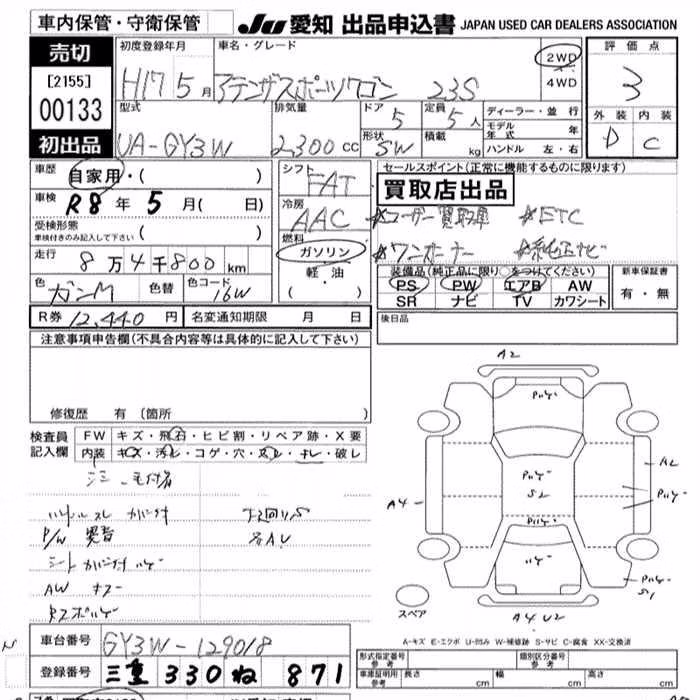 車内保管・守衛保管
JU 愛知 出品申込書 JAPAN USED CAR DEALERS ASSOCIATION
売切
[2155]
00133
初出品
初度登録年月 車名・グレード
H17 5月 アテンザスポーツワゴン 23S
2WD
4WD
評価点
3
外装 内装
D C
型式 排気量 ドア 定員
UA-GY3W 2300cc 5 5人
形状 積載
SW kg
ディーラー・並行
モデル年式 年
ハンドル 左・右
車歴 自家用・( )
車検 R8年 5月( 日)
受検形態
車検付きのみ記入して下さい ( )
走行 8万4千800km
色 ガンM 色替 色コード 16W
R券 12,440円 名変通知期限 月 日
シフト
FAT
冷房
AAC
燃料
ガソリン
軽・油
・( )
セールスポイント(正常に機能するものに限ります)
買取店出品
*ユーザー買取車 *ETC
*ワンオーナー *純正ナビ
装備品(純正品に限り○をつけてください)
PS PW エアB AW
SR ナビ TV カワシート
新車保証書
有・無
後日品
注意事項申告欄(不具合内容等は具体的に記入して下さい)
修復歴 有 (箇所 )
検査員記入欄
FW キズ・飛石・ヒビ割・リペア跡・X要
内装 キズ・汚レ・コゲ・穴・スレ・ヨレ・破レ
ハンドルスレ
P/W 異音
AW キズ
A2
A2
A4
S2
S1
A4 U2
スペア
A-キズ E-エクボ U-凹み W-補修跡 S-サビ C-腐食 XX-交換済
車台番号 GY3W-129018
登録番号 三重 330 ね 871
形式指定番号 参考
類別区分番号 参考
車庫証明用 参考 長さ cm 幅 cm 高さ cm